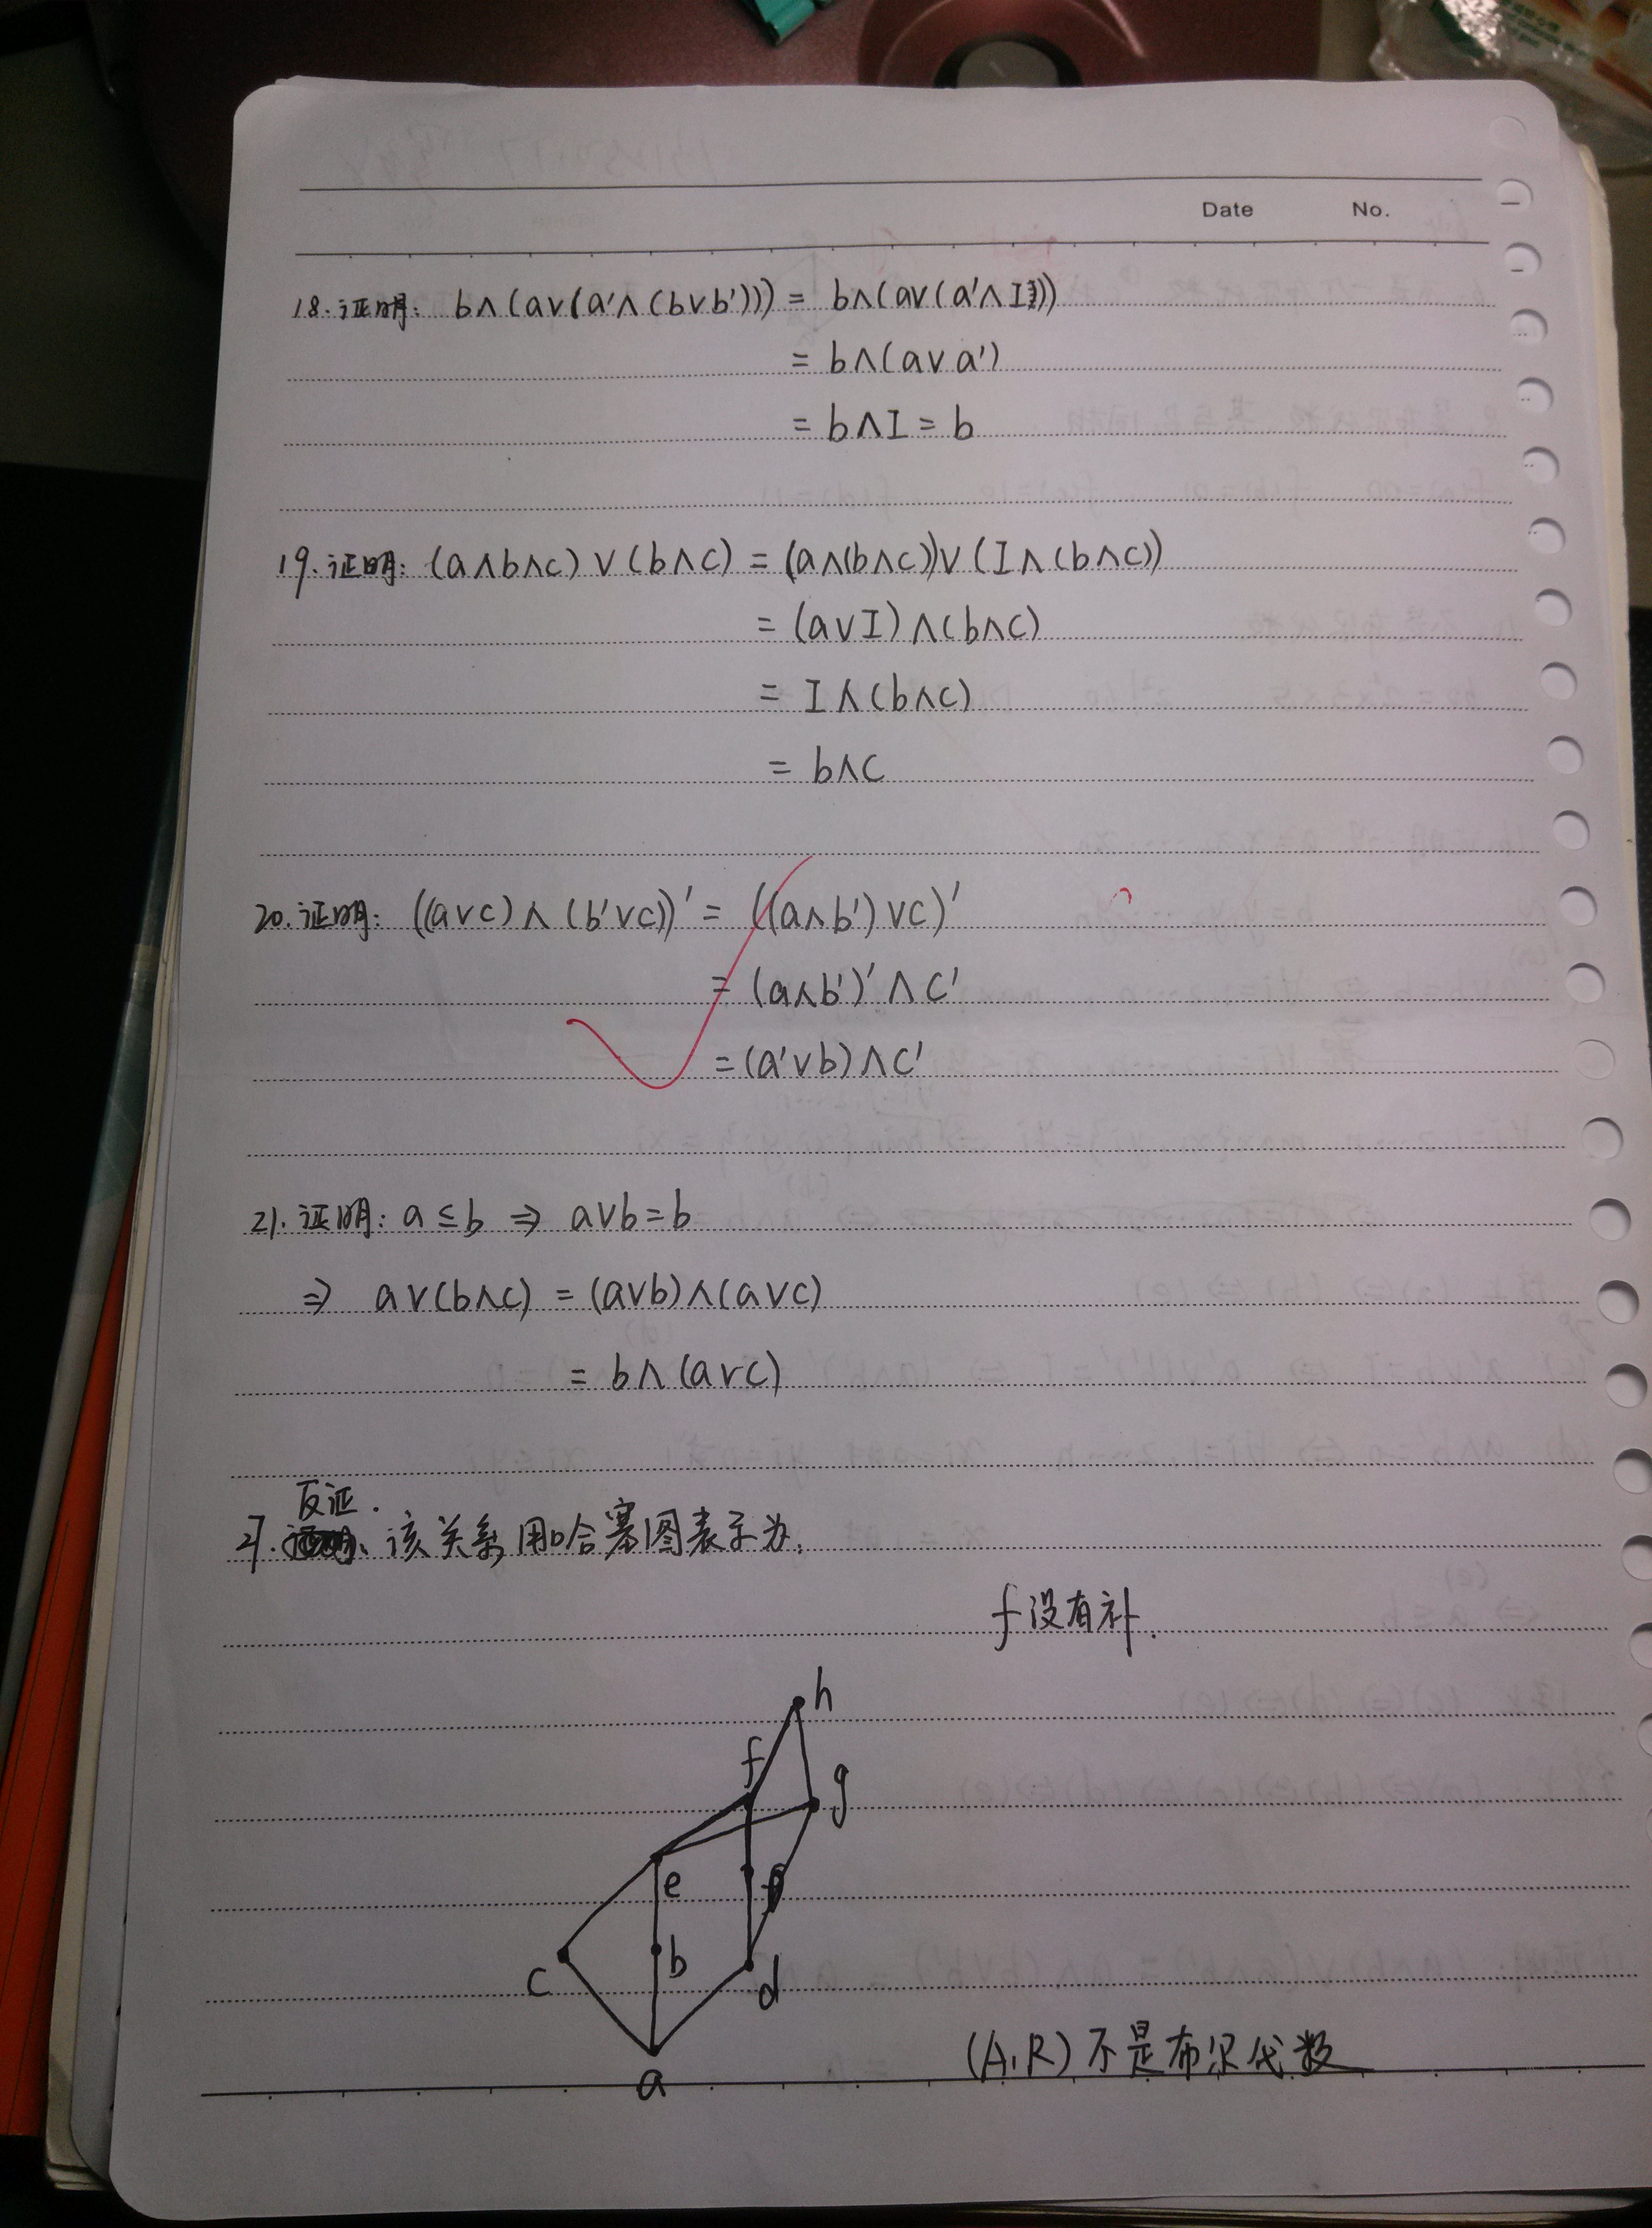 Date No.
18. 证明: b∧(a∨(a'∧(b∨b'))) = b∧(a∨(a'∧I))
= b∧(a∨a')
= b∧I = b
19. 证明: (a∧b∧c)∨(b∧c) = (a∧(b∧c))∨(I∧(b∧c))
= (a∨I)∧(b∧c)
= I∧(b∧c)
= b∧c
20. 证明: ((a∨c)∧(b'∨c))' = ((a∧b')∨c)'
= (a∧b')'∧c'
= (a'∨b)∧c'
21. 证明: a≤b ⇒ a∨b=b
⇒ a∨(b∧c) = (a∨b)∧(a∨c)
= b∧(a∨c)
反证.
该关系用哈塞图表示为:
f没有补.
h
f
g
e
b
c
d
a
(A,R)不是布尔代数